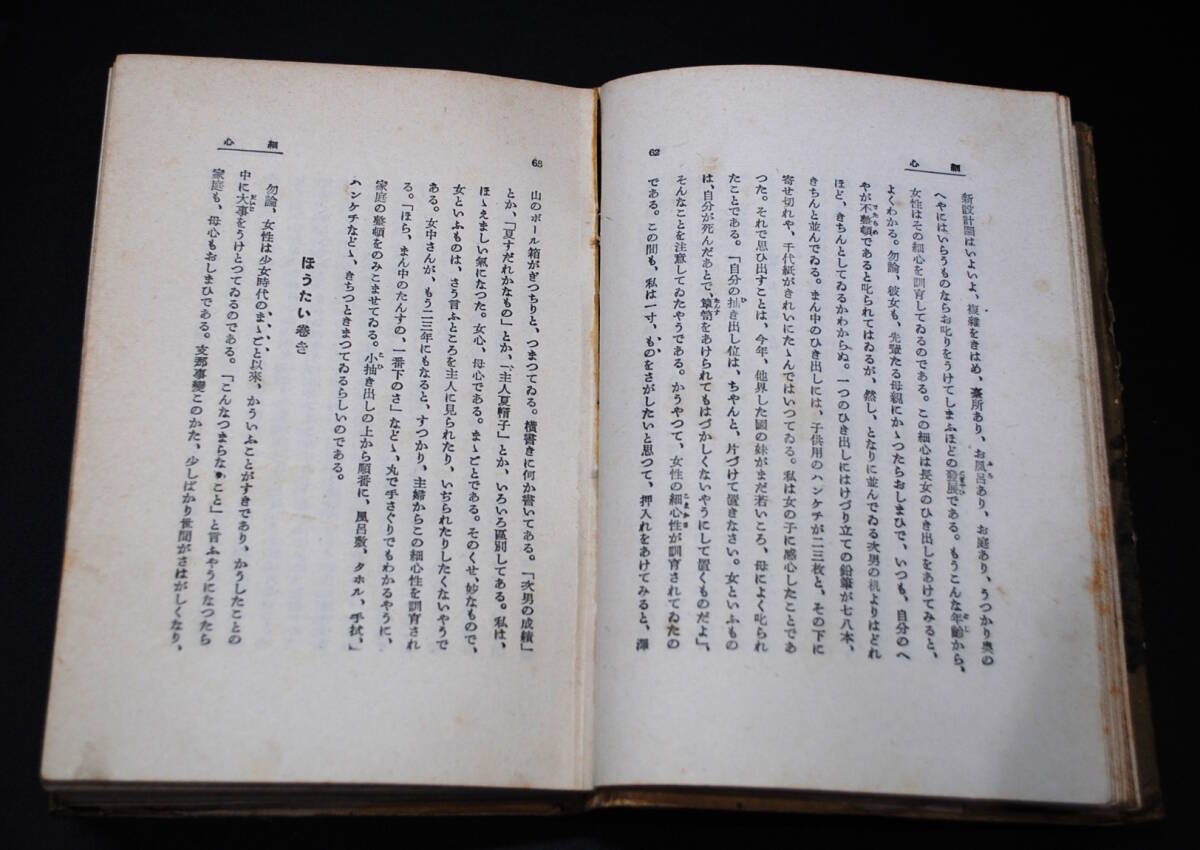 細心
62
新設計圖はいよいよ、複雜をきはめ、臺所あり、お風呂あり、お庭あり、うつかり奥の
へやにはいらうものならお叱りをうけてしまふほどの發展である。もうこんな年齡から、
女性はその細心を訓育してゐるのである。この細心は長女のひき出しをあけてみると、
よくわかる。勿論、彼女も、先輩たる母親にかゝつたらおしまひで、いつも、自分のへ
やが不整頓であると叱られてはゐるが、然し、となりに並んでゐる次男の机よりはどれ
ほど、きちんとしてゐるかわからぬ。一つのひき出しにはけづり立ての鉛筆が七八本、
きちんと並んでゐる。まん中のひき出しには、子供用のハンケチが二三枚と、その下に
寄せ切れや、千代紙がきれいにたゝんではいつてゐる。私は女の子に感心したことであ
つた。それで思ひ出すことは、今年、他界した國の妹がまだ若いころ、母によく叱られ
たことである。「自分の抽き出し位は、ちやんと、片づけて置きなさい。女といふもの
は、自分が死んだあとで、簞笥をあけられてもはづかしくないやうにして置くものだよ」、
そんなことを注意してゐたやうである。かうやつて、女性の細心性が訓育されてゐたの
である。この間も、私は一寸、ものをさがしたいと思つて、押入れをあけてみると、澤
細心
63
山のボール箱がぎつちりと、つまつてゐる。橫書きに何か書いてある。「次男の成績」
とか、「夏すだれかなもの」とか、「主人夏帽子」とか、いろいろ區別してある。私は、
ほゝえましい氣になつた。女心、母心である。まゝごとである。そのくせ、妙なもので、
女といふものは、さう言ふところを主人に見られたり、いぢられたりしたくないやうで
ある。女中さんが、もう二三年にもなると、すつかり、主婦からこの細心性を訓育され
る。「ほら、まん中のたんすの、一番下のさ」などゝ、丸で手さぐりでもわかるやうに、
家庭の整頓をのみこませてゐる。小抽き出しの上から順番に、風呂敷、タホル、手拭、
ハンケチなどゝ、きちつときまつてゐるらしいのである。
ほうたい卷き
勿論、女性は少女時代のまゝごと以來、かういふことがすきであり、かうしたことの
中に大事をうけとつてゐるのである。「こんなつまらないこと」と言ふやうになつたら
家庭も、母心もおしまひである。支那事變このかた、少しばかり世間がさはがしくなり、